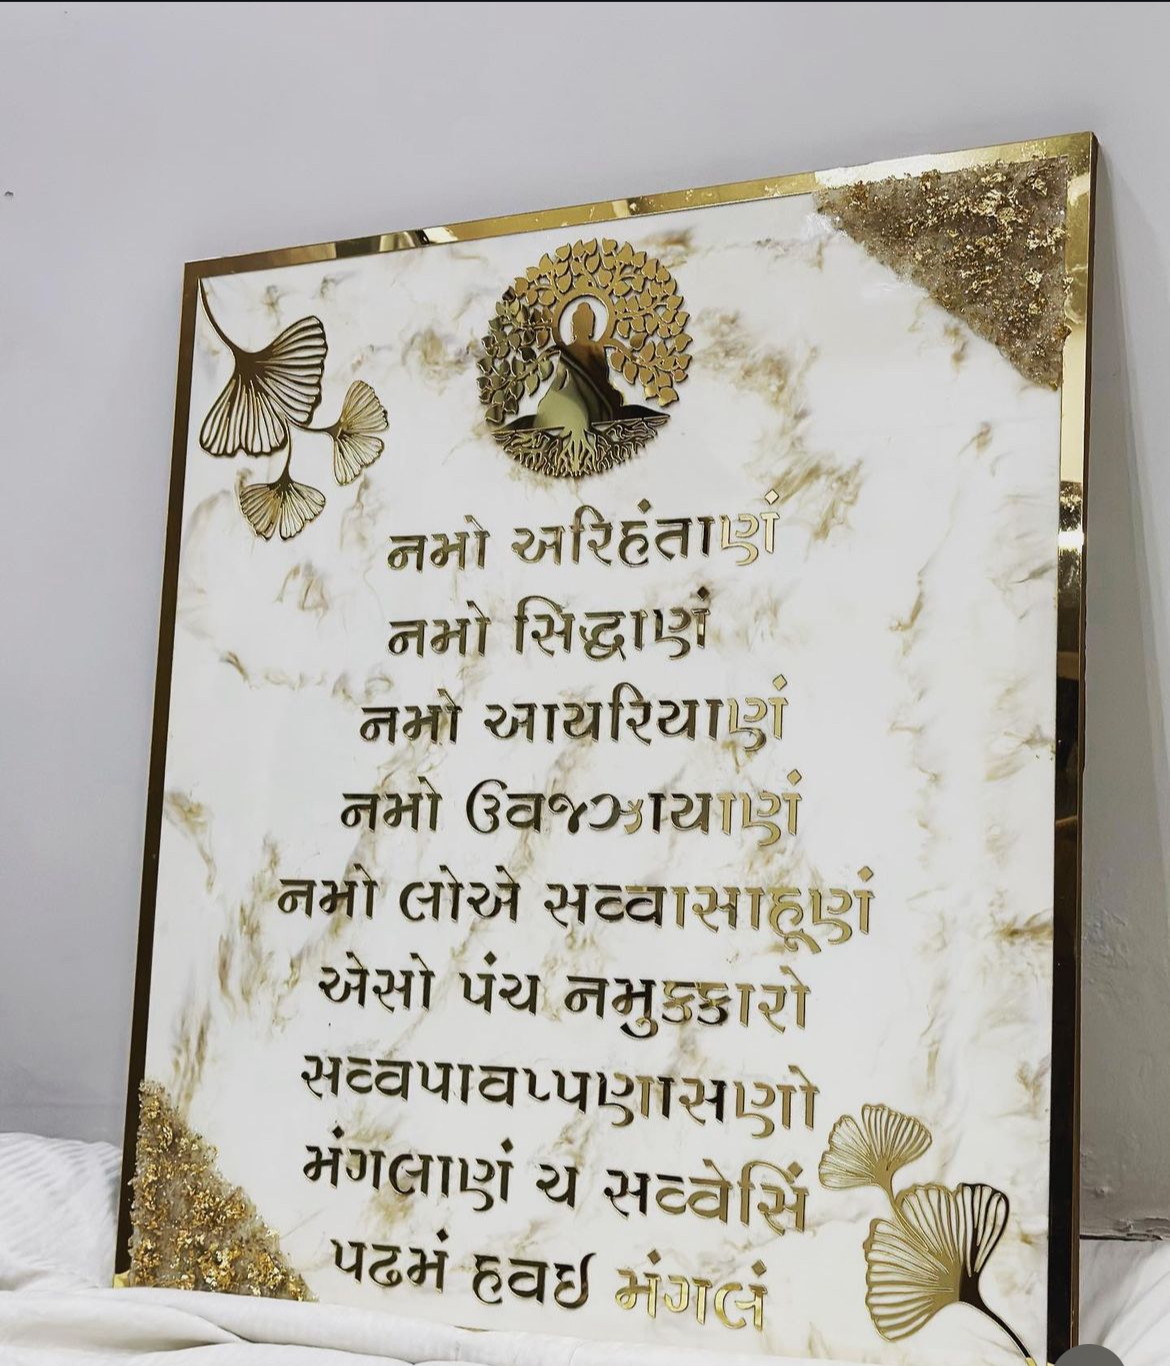 નમો અરિહંતાણં
નમો સિદ્ધાણં
નમો આયરિયાણં
નમો ઉવજઝાયાણં
નમો લોએ સવ્વાસાહૂણં
એસો પંચ નમુક્કારો
સવ્વપાવપ્પણાસણો
મંગલાણં ચ સવ્વેસિં
પઢમં હવઇ મંગલં